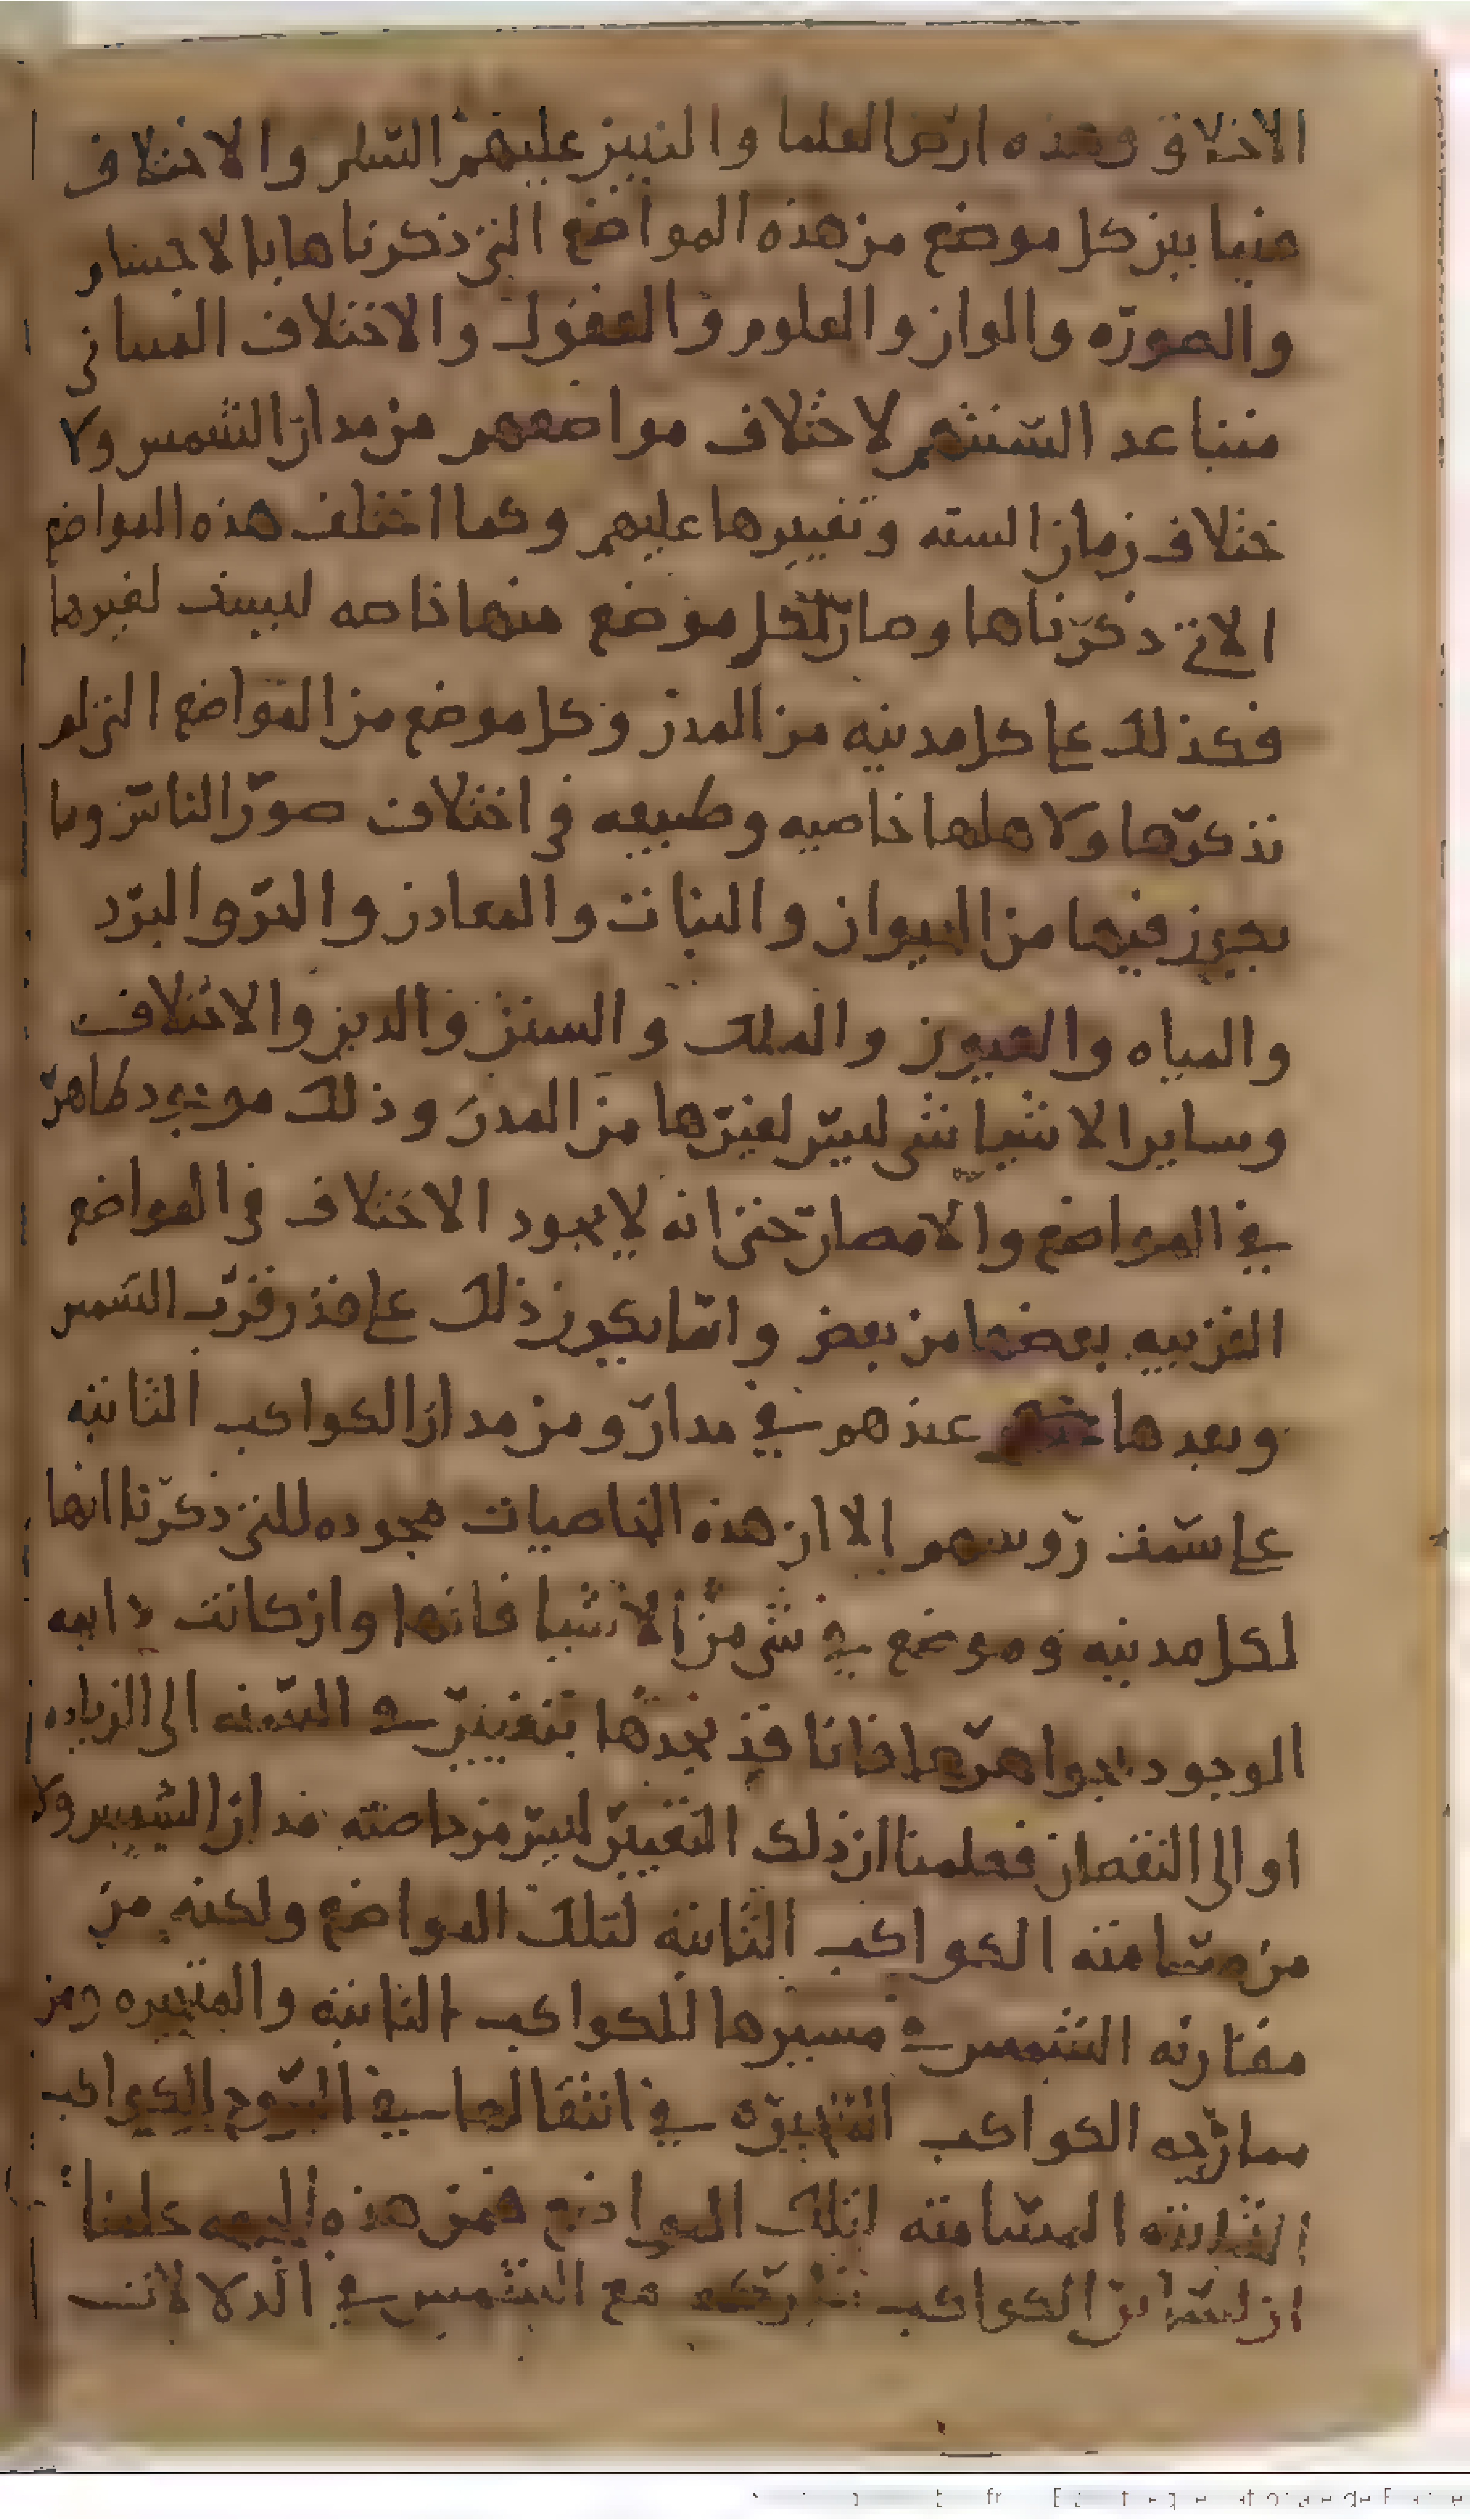 الاخلاق وهذه ارض العلما والنبيين عليهم السلم والاختلاف
فيما بين كل موضع من هذه المواضع التي ذكرناها بالاجسام
والصوره والوان والعلوم والعقول والاختلاف اللساني
متباعد السنتهم لاختلاف مواضعهم من مدار الشمس ولا
ختلاف زمان السنه وتغييرها عليهم وكما اختلف هذه المواضع
الاتي ذكرناها وصار لكل موضع منها خاصه ليست لغيرها
فكذلك على كل مدينه من المدن وكل موضع من المواضع التي لم
نذكرها ولاهلها خاصيه وطبيعه في اختلاف صور الناس وما
يكون فيها من الحيوان والنبات والمعادن والحر والبرد
والمياه والعيون والملك والسنن والدين والاختلاف
وساير الاشيا شي ليس لغيرها من المدن وذلك موجود ظاهر
في المواضع والامصار حتى انه لا يجود الاختلاف في المواضع
القريبه بعضها من بعض وانما يكون ذلك على قدر قرب الشمس
وبعدها عندهم في مدار ومن مدار الكواكب الثابته
على سمت روسهم الا ان هذه الخاصيات مجوده للتي ذكرنا انها
لكل مدينه وموضع في شي من الاشيا فانها وان كانت دايمه
الوجود بجواهرها فانا قد نجدها بتغيير في السنه الى الزياده
او الى النقصان فعلمنا ان ذلك التغيير ليس من خاصته مدار الشمس ولا
من مسامته الكواكب الثابته لتلك المواضع ولكنه من
مقارنه الشمس في مسيرها للكواكب الثابته والمتحيره ومن
ممازجه الكواكب المتحيره في انتقالها في البروج الكواكب
الثابته المسامته لتلك المواضع فمن هذه الجهه علمنا
ان لساير الكواكب شركه مع الشمس في الدلالات